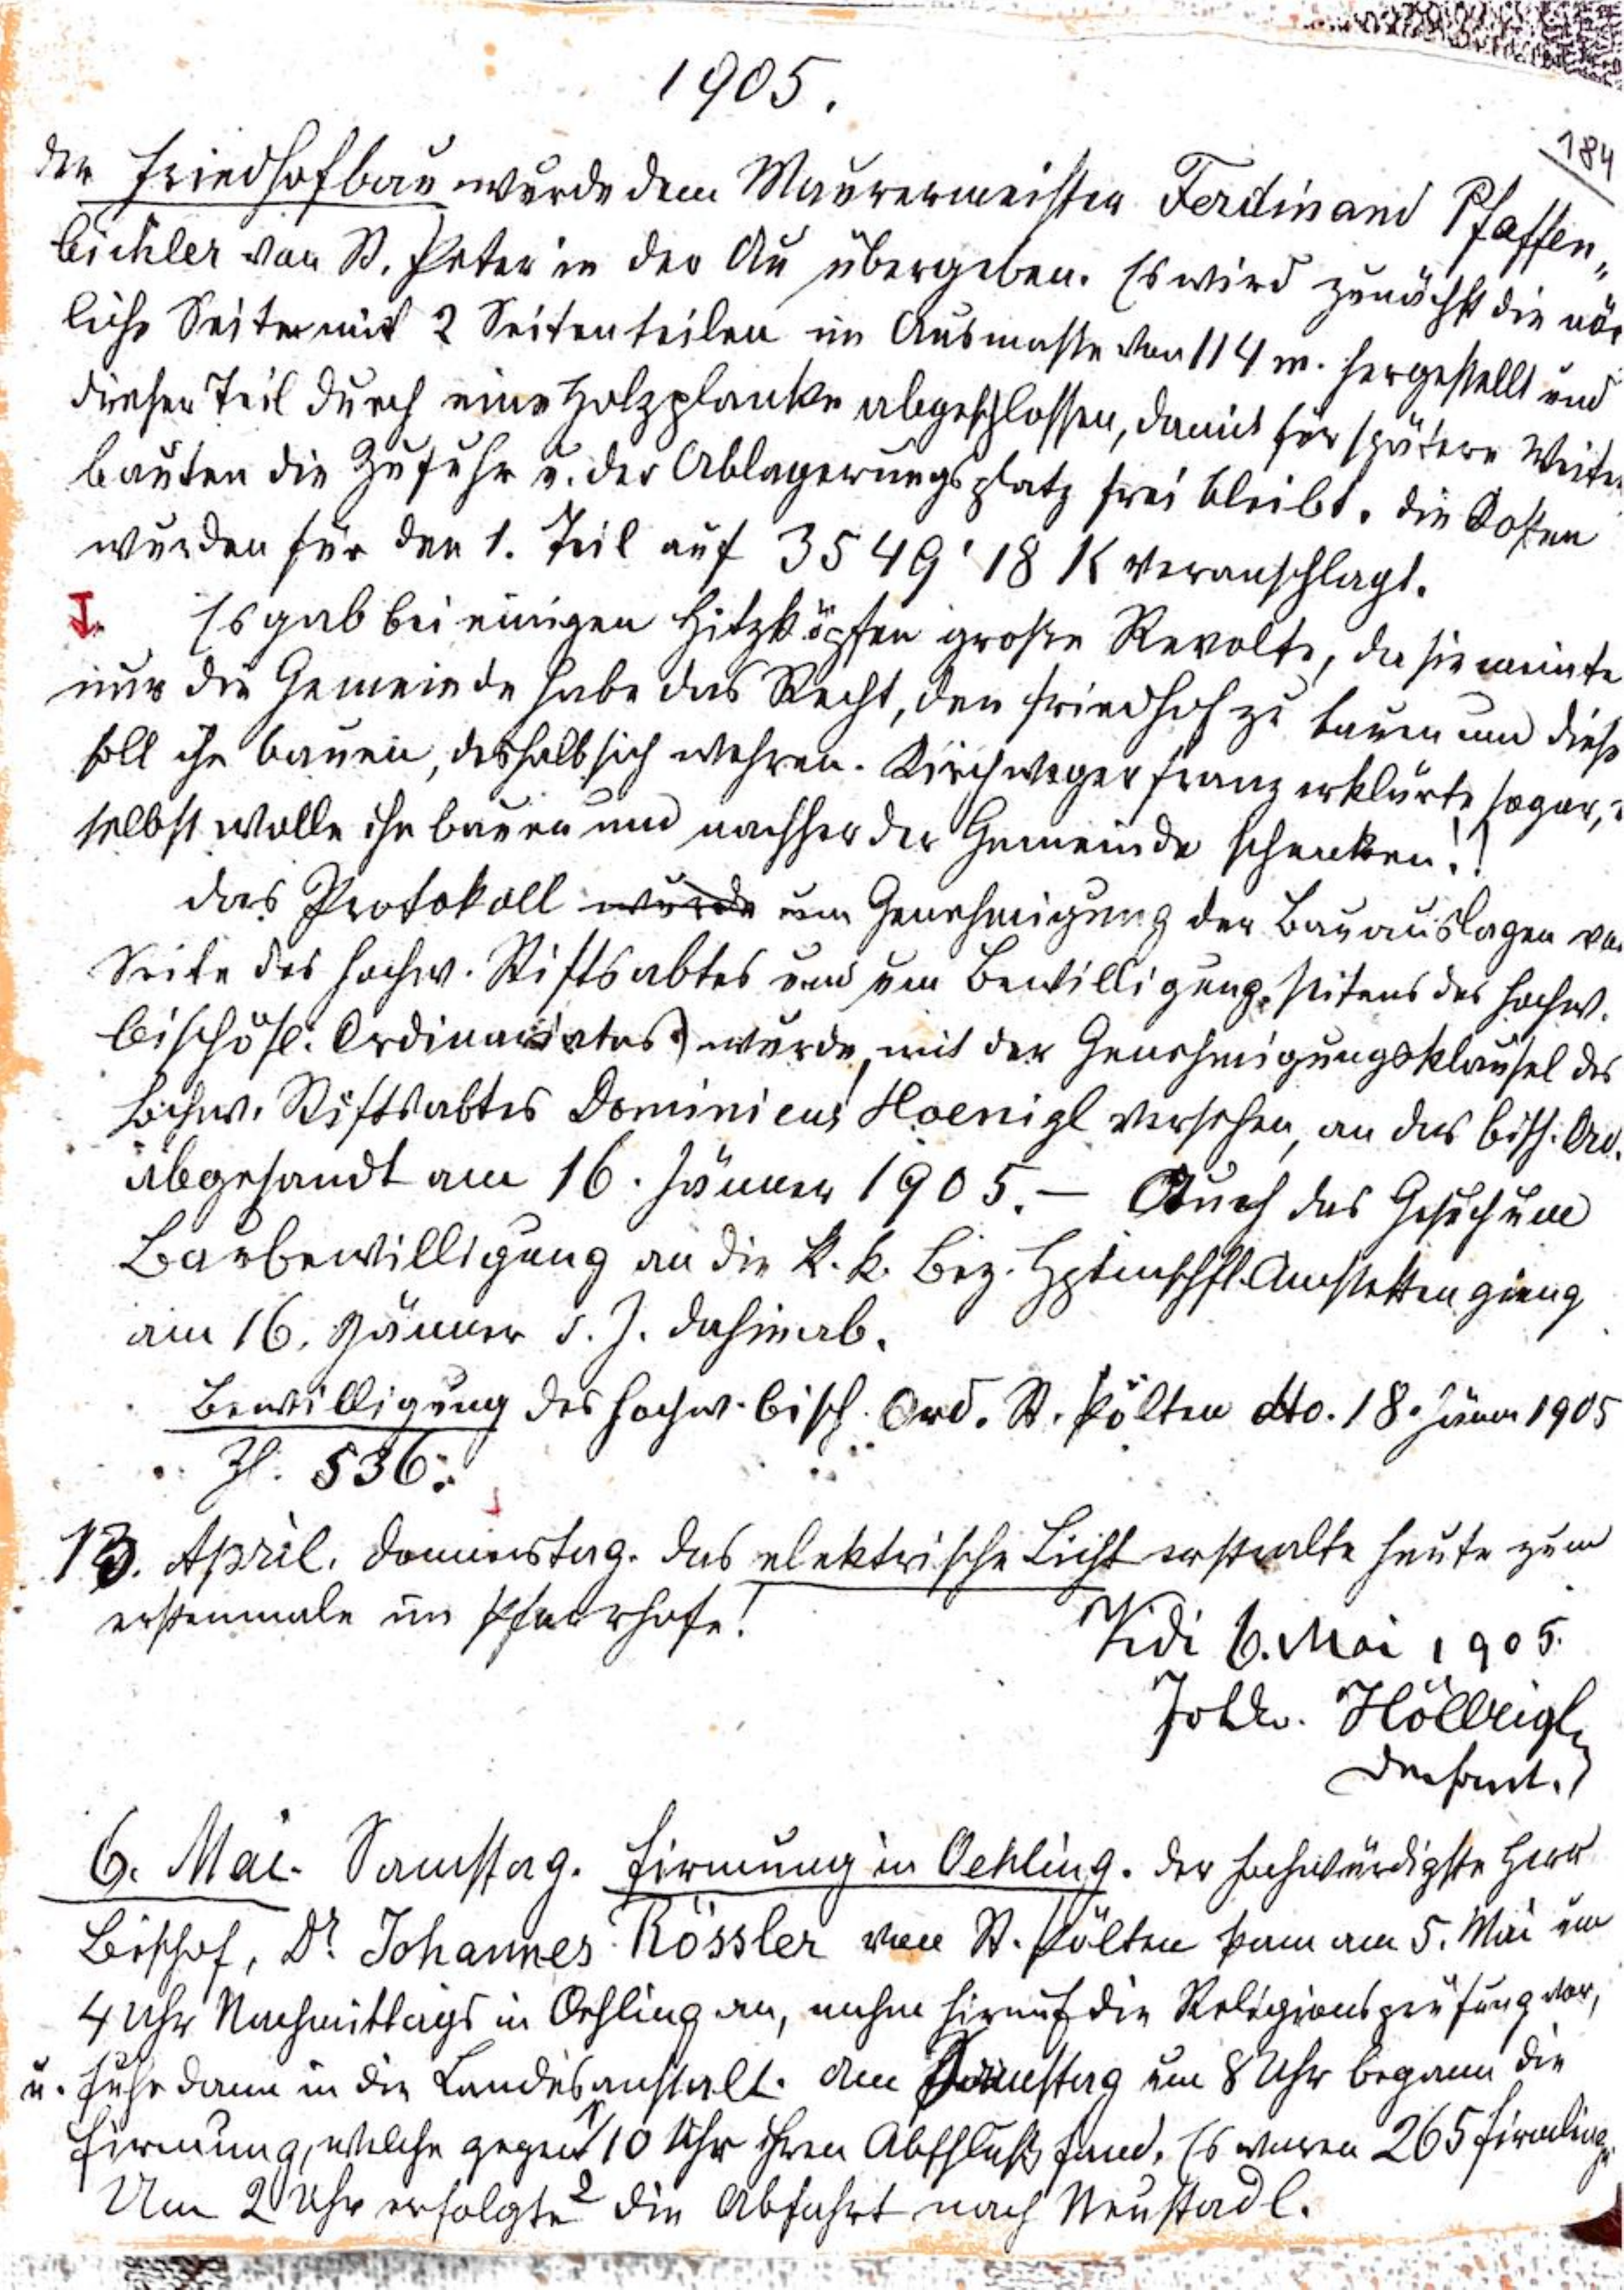 1905.
184
Der Friedhofbau wurde dem Maurermeister Ferdinand Pfaffen„
bichler von St. Peter in der Au übergeben. Es wird zunächst die nör
liche Seite mit 2 Seitenteilen im Ausmasse von 114 m. hergestellt und
dieser Teil durch eine Holzplanke abgeschlossen, damit für spätere Weiter
bauten die Zufuhr u. der Ablagerungsplatz frei bleibt. Die Kosten
wurden für den 1. Teil auf 3549'18 K veranschlagt.
Es gab bei einigen Hitzköpfen große Revolte, da sie meinte
nur die Gemeinde habe das Recht, den Friedhof zu bauen und diese
soll ihn bauen, deshalb sich wehren. Kirchweger Franz erklärte sogar,
selbst wolle ihn bauen und nachher der Gemeinde schenken!!
Das Protokoll wurde um Genehmigung der Bauauslagen von
Seite des hochw. Stiftsabtes und um Bewilligung seitens des hochw.
bischöfl. Ordinariates) wurde, mit der Genehmigungsklausel des
hochw. Stiftsabtes Dominicus Hoenigl versehen, an das bisch. Ord.
abgesandt am 16. Jänner 1905. – Auch das Gesuch um
Baubewilligung an die k. k. Bez. Hptmschft. Amstetten gieng
am 16. Jänner d. J. dahin ab.
Bewilligung des hochw. bisch. Ord. St. Pölten dto. 18. Jänn 1905
Zl. 536.
13. April. Donnerstag. Das elektrische Licht erstralte heute zum
erstenmale im Pfarrhofe!
Vidi 6. Mai 1905.
Höllrigl
Dechant.
6. Mai. Samstag. Firmung in Oehling. Der hochwürdigste Herr
Bischof, Dr. Johannes Rössler von St. Pölten kam am 5. Mai um
4 Uhr Nachmittags in Oehling an, nahm hierauf die Religionsprüfung vor,
u. fuhr dann in die Landesanstalt. Am Samstag um 8 Uhr begann die
Firmung, welche gegen 1/2 10 Uhr ihren Abschluß fand. Es waren 265 Firmlinge.
Um 2 Uhr erfolgte die Abfahrt nach Neustadl.